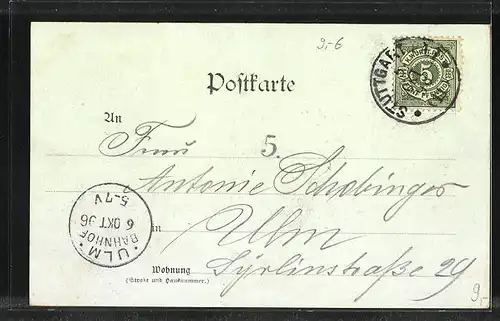 9,-6
STUTTGART
5
Postkarte
An
Frau
5.
Antonie Schabinger
in Ulm
Wohnung Syrlinstraße 29
(Strasse und Hausnummer.)
ULM
BAHNHOF
6 OKT 96
5-7 V
9,-